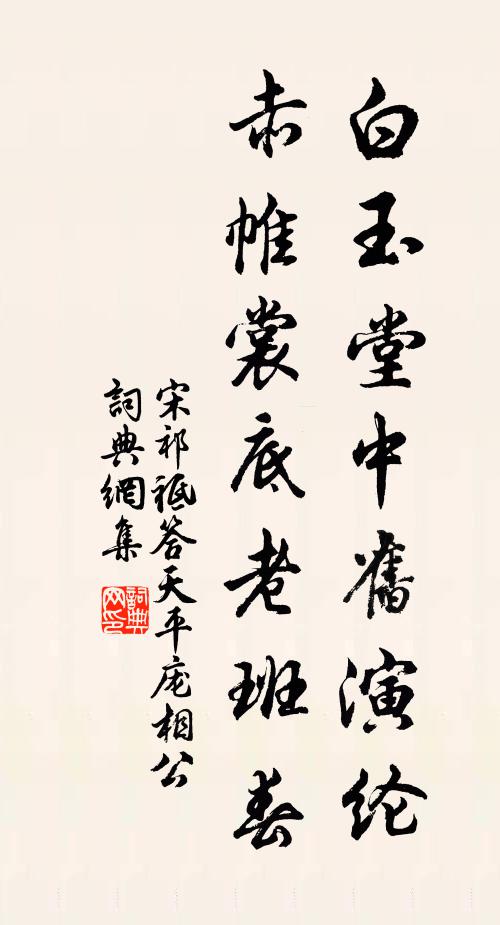 白玉堂中舊演纶
赤帷裳底老班春
宋祁祗答天平庞相公
詞典網集
詞典网印